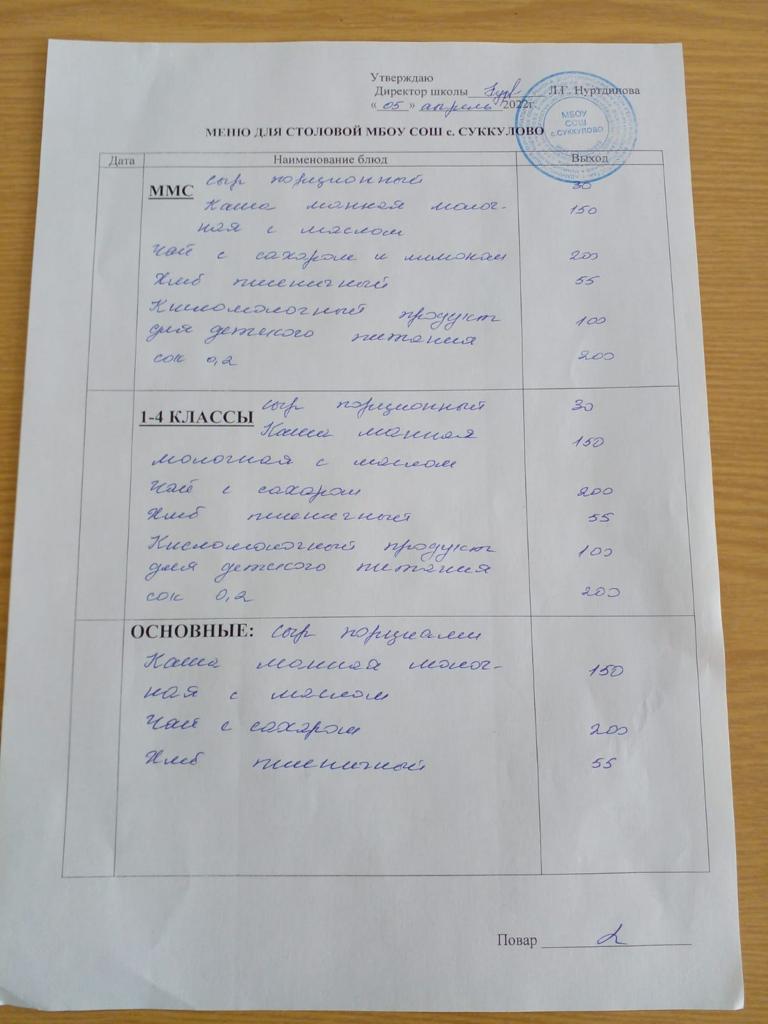 Утверждаю
Директор школы Л.Г. Нуртдинова
«05» апрель 2022г.
МБОУ
СОШ
с.СУККУЛОВО
МЕНЮ ДЛЯ СТОЛОВОЙ МБОУ СОШ с. СУККУЛОВО
Дата Наименование блюд Выход
ММС сыр порционный 30
Каша манная молоч- 150
ная с маслом
Чай с сахаром и лимоном 200
Хлеб пшеничный 55
Кисломолочный продукт 100
для детского питания
сок 0,2 200
1-4 КЛАССЫ сыр порционный 30
Каша манная 150
молочная с маслом
Чай с сахаром 200
Хлеб пшеничный 55
Кисломолочный продукт 100
для детского питания
сок 0,2 200
ОСНОВНЫЕ: сыр порциями
Каша манная молоч- 150
ная с маслом
Чай с сахаром 200
Хлеб пшеничный 55
Повар